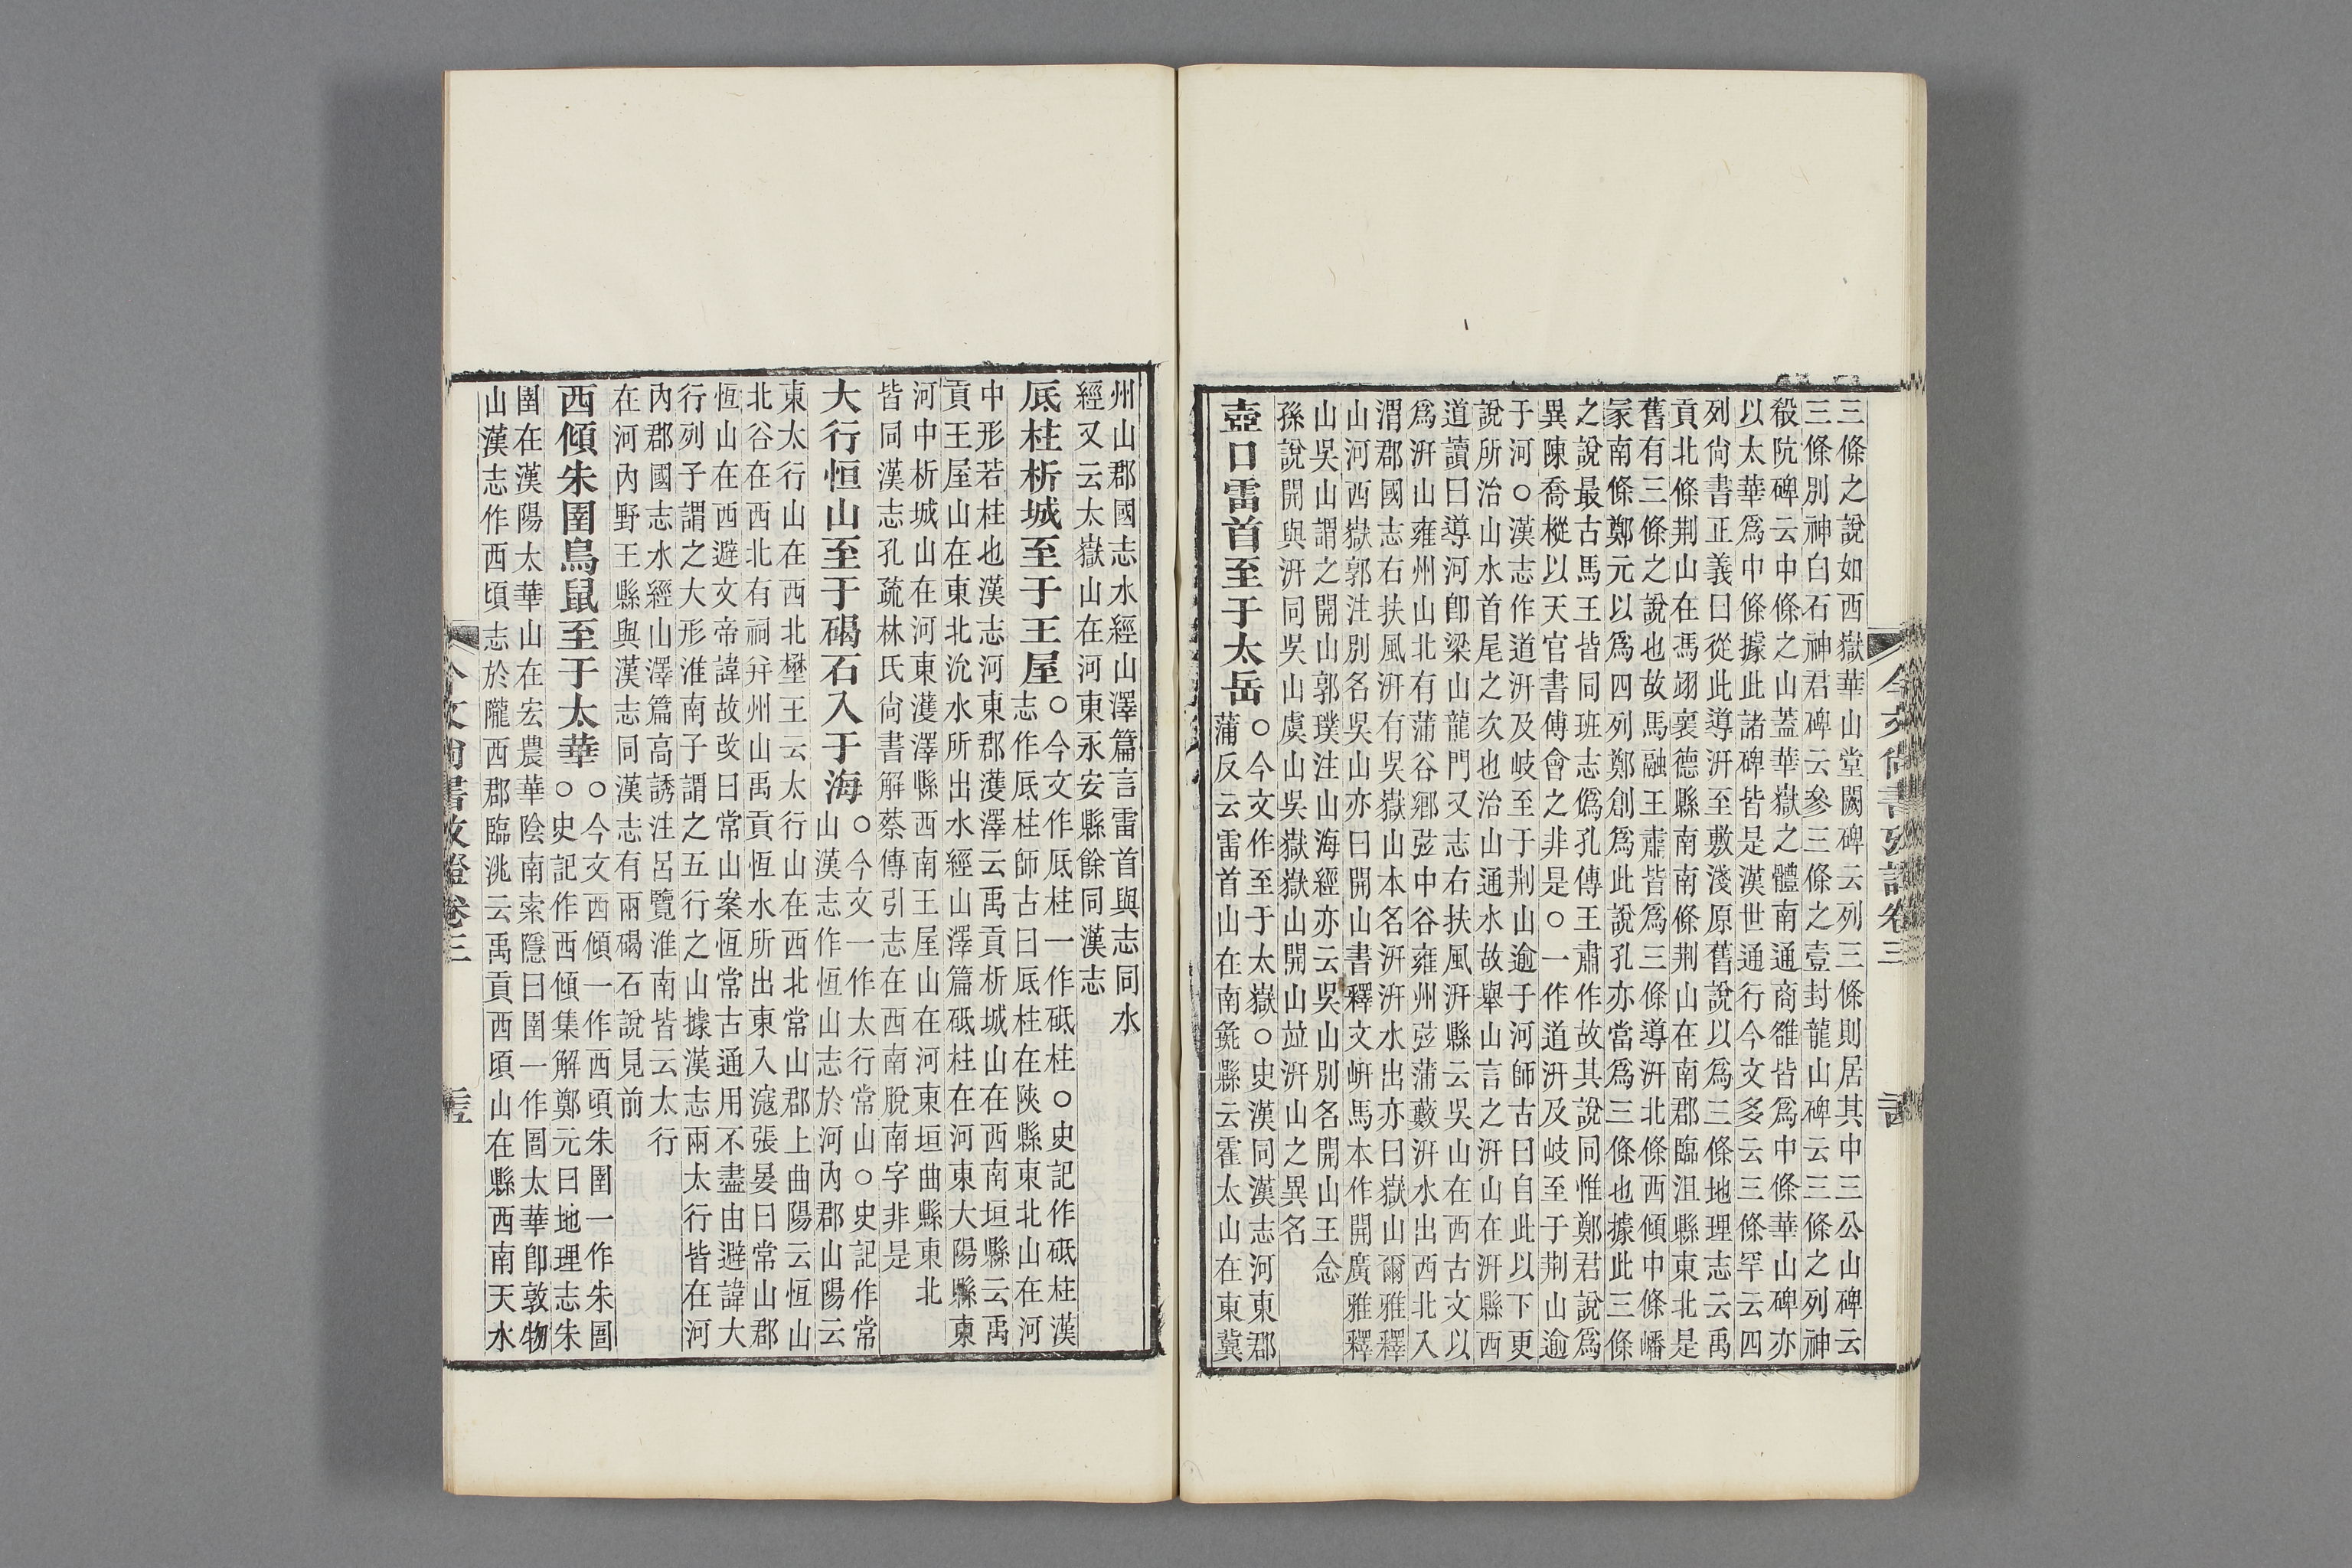 三條之說如西嶽華山堂闕碑云列三條則居其中三公山碑云
三條別神白石神君碑云參三條之壹封龍山碑云三條之列神
殽阬碑云中條之山蓋華嶽之體南通商雒皆爲中條華山碑亦
以太華爲中條據此諸碑皆是漢世通行今文多云三條罕云四
列尙書正義曰從此導汧至敷淺原舊說以爲三條地理志云禹
貢北條荆山在馮翊褱德縣南南條荆山在南郡臨沮縣東北是
舊有三條之說也故馬融王肅皆爲三條導汧北條西傾中條嶓
冡南條鄭元以爲四列鄭創爲此說孔亦當爲三條也據此三條
之說最古馬王皆同班志僞孔傳王肅作故其說同惟鄭君說爲
異陳喬樅以天官書傅會之非是○一作道汧及岐至于荆山逾
于河○漢志作道汧及岐至于荆山逾于河師古曰自此以下更
說所治山水首尾之次也治山通水故舉山言之汧山在汧縣西
道讀曰導河卽梁山龍門又志右扶風汧縣云吳山在西古文以
爲汧山雍州山北有蒲谷鄕弦中谷雍州弦蒲藪汧水出西北入
渭郡國志右扶風汧有吳嶽山本名汧汧水出亦曰嶽山爾雅釋
山河西嶽郭注別名吳山亦曰開山書釋文岍馬本作開廣雅釋
山吳山謂之開山郭璞注山海經亦云吳山別名開山王念
孫說開與汧同吳山虞山吳嶽嶽山開山竝汧山之異名
壺口雷首至于太岳○今文作至于太嶽○史漢同漢志河東郡
蒲反云雷首山在南彘縣云霍太山在東冀
今文尙書攷證卷三
州山郡國志水經山澤篇言雷首與志同水
經又云太嶽山在河東永安縣餘同漢志
厎柱析城至于王屋○今文作厎柱一作砥柱○史記作砥柱漢
志作厎柱師古曰厎柱在陝縣東北山在河
中形若柱也漢志河東郡濩澤云禹貢析城山在西南垣縣云禹
貢王屋山在東北沇水所出水經山澤篇砥柱在河東大陽縣東
河中析城山在河東濩澤縣西南王屋山在河東垣曲縣東北
皆同漢志孔疏林氏尙書解蔡傳引志在西南脫南字非是
大行恒山至于碣石入于海○今文一作太行常山○史記作常
山漢志作恆山志於河內郡山陽云
東太行山在西北壄王云太行山在西北常山郡上曲陽云恆山
北谷在西北有祠幷州山禹貢恆水所出東入滱張晏曰常山郡
恆山在西避文帝諱故改曰常山案恆常古通用不盡由避諱大
行列子謂之大形淮南子謂之五行之山據漢志兩太行皆在河
內郡國志水經山澤篇高誘注呂覽淮南皆云太行
在河內野王縣與漢志同漢志有兩碣石說見前
西傾朱圉鳥鼠至于太華○今文西傾一作西頃朱圉一作朱圄
○史記作西傾集解鄭元曰地理志朱
圉在漢陽太華山在宏農華陰南索隱曰圉一作圄太華卽敦物
山漢志作西頃志於隴西郡臨洮云禹貢西頃山在縣西南天水
今文尙書攷證卷三